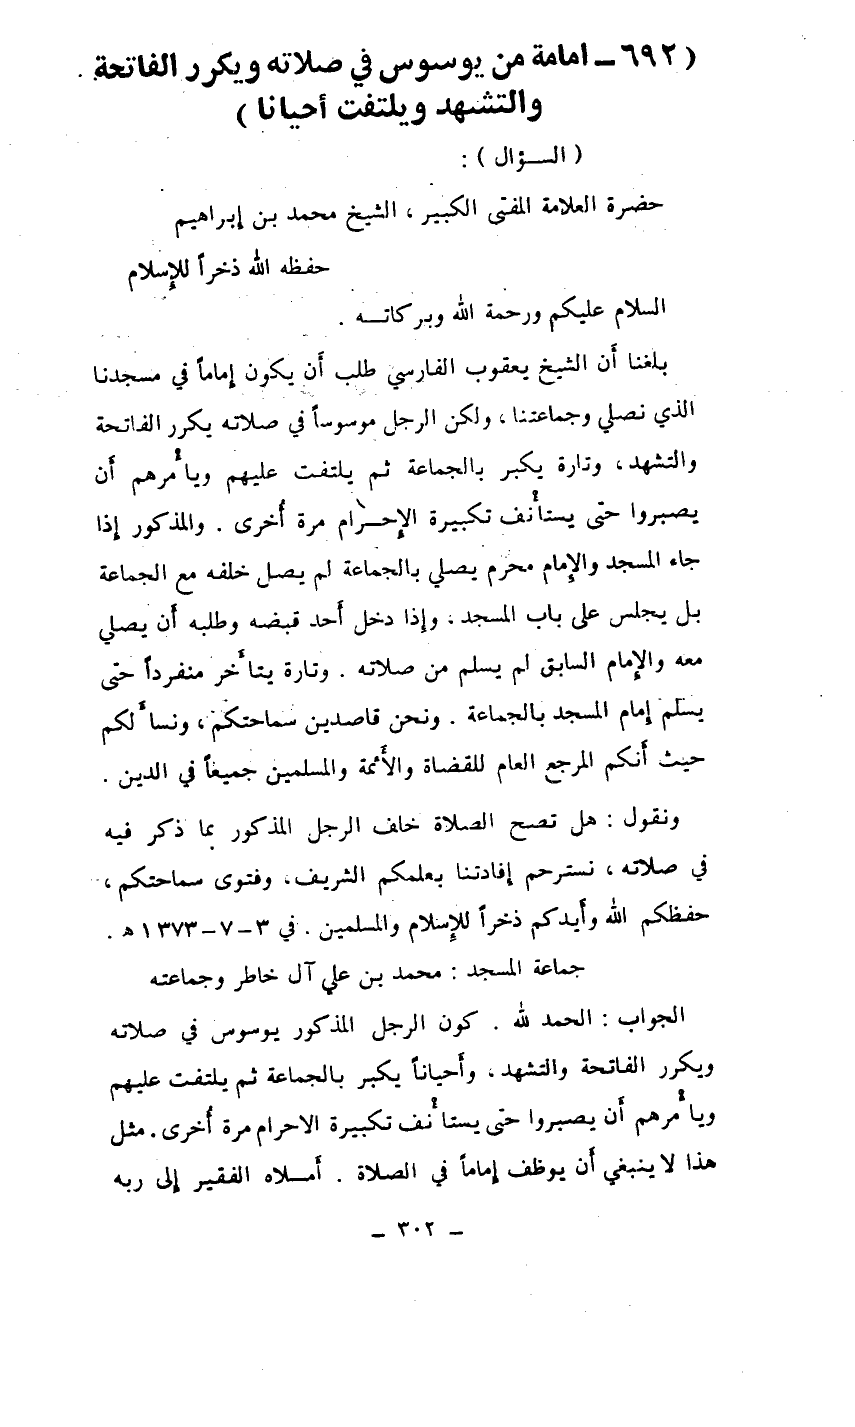 ( ٦٩٢ ــ امامة من يوسوس في صلاته ويكرر الفاتحة
والتشهد ويلتفت أحيانا )
( الســؤال ) :
حضرة العلامة المفتى الكبير ، الشيخ محمد بن إبراهيم
حفظه الله ذخراً للإسلام
السلام عليكم ورحمة الله وبركاتــه .
بلغنا أن الشيخ يعقوب الفارسي طلب أن يكون إماماً في مسجدنا
الذي نصلي وجماعتنا ، ولكن الرجل موسوساً في صلاته يكرر الفاتحة
والتشهد ، وتارة يكبر بالجماعة ثم يلتفت عليهم ويأمرهم أن
يصبروا حتى يستأنف تكبيرة الإحــرام مرة أُخرى . والمذكور إذا
جاء المسجد والإمام محرم يصلي بالجماعة لم يصل خلفه مع الجماعة
بل يجلس على باب المسجد ، وإذا دخل أحد قبضه وطلبه أن يصلي
معه والإمام السابق لم يسلم من صلاته . وتارة يتأخر منفرداً حتى
يسلم إمام المسجد بالجماعة . ونحن قاصدين سماحتكم ، ونسألكم
حيث أنكم المرجع العام للقضاة والأئمة والمسلمين جميعاً في الدين .
ونقول : هل تصح الصلاة خلف الرجل المذكور بما ذكر فيه
في صلاته ، نسترحم إفادتنا بعلمكم الشريف ، وفتوى سماحتكم ،
حفظكم الله وأيدكم ذخراً للإسلام والمسلمين . في ٣ – ٧ – ١٣٧٣ هـ .
جماعة المسجد : محمد بن علي آل خاطر وجماعته
الجواب : الحمد لله . كون الرجل المذكور يوسوس في صلاته
ويكرر الفاتحة والتشهد ، وأحياناً يكبر بالجماعة ثم يلتفت عليهم
ويأمرهم أن يصبروا حتى يستأنف تكبيرة الاحرام مرة أُخرى . مثل
هذا لا ينبغي أن يوظف إماماً في الصلاة . أمــلاه الفقير إلى ربه
ــ ٣٠٢ ــ